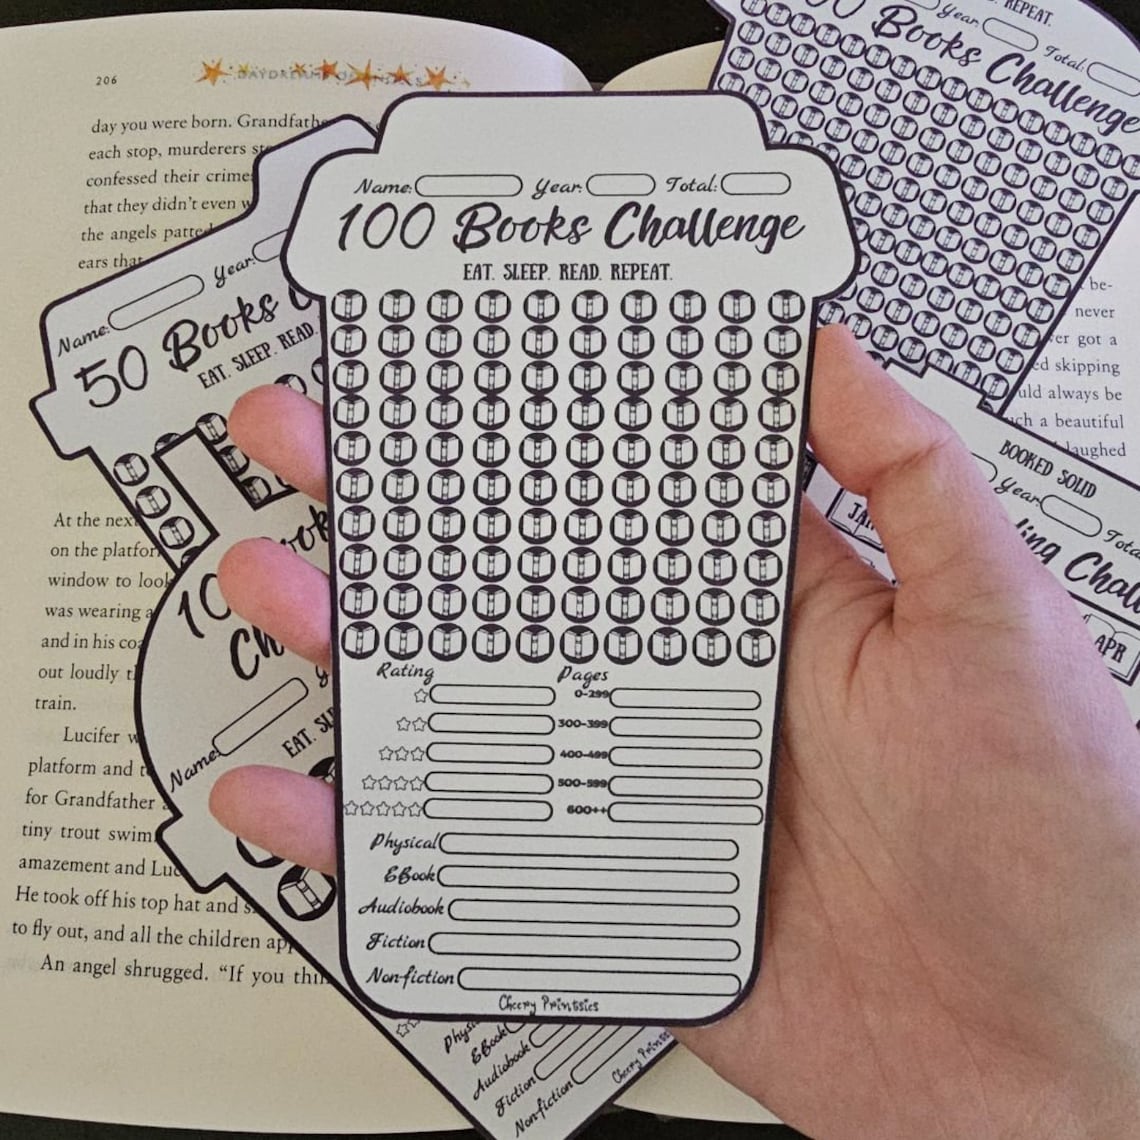 206
day you were born. Grandfathe
each stop, murderers
confessed their crime
that they didn't even
the angels patted
ears that
At the next
on the platform
window to look
was wearing a
and in his
out loudly
train.
Lucifer
platform and
for Grandfather
tiny trout swim
amazement and
He took off his top hat and
to fly out, and all the children
An angel shrugged. "If you thin
Name: Year: Total:
100 Books Challenge
EAT. SLEEP. READ. REPEAT.
Rating Pages
0-299
300-399
400-499
500-599
600++
Physical
EBook
Audiobook
Fiction
Non-fiction
Cheery Printsies
Name: Year:
50 Books
EAT. SLEEP. READ.
10
Name:
EAT.
EBook
Audiobook
Fiction
Non-fiction
Cheery
REPEAT.
Year: Total:
Books Challenge
be-
never
got a
skipping
always be
a beautiful
laughed
BOOKED SOLID
Year:
APR